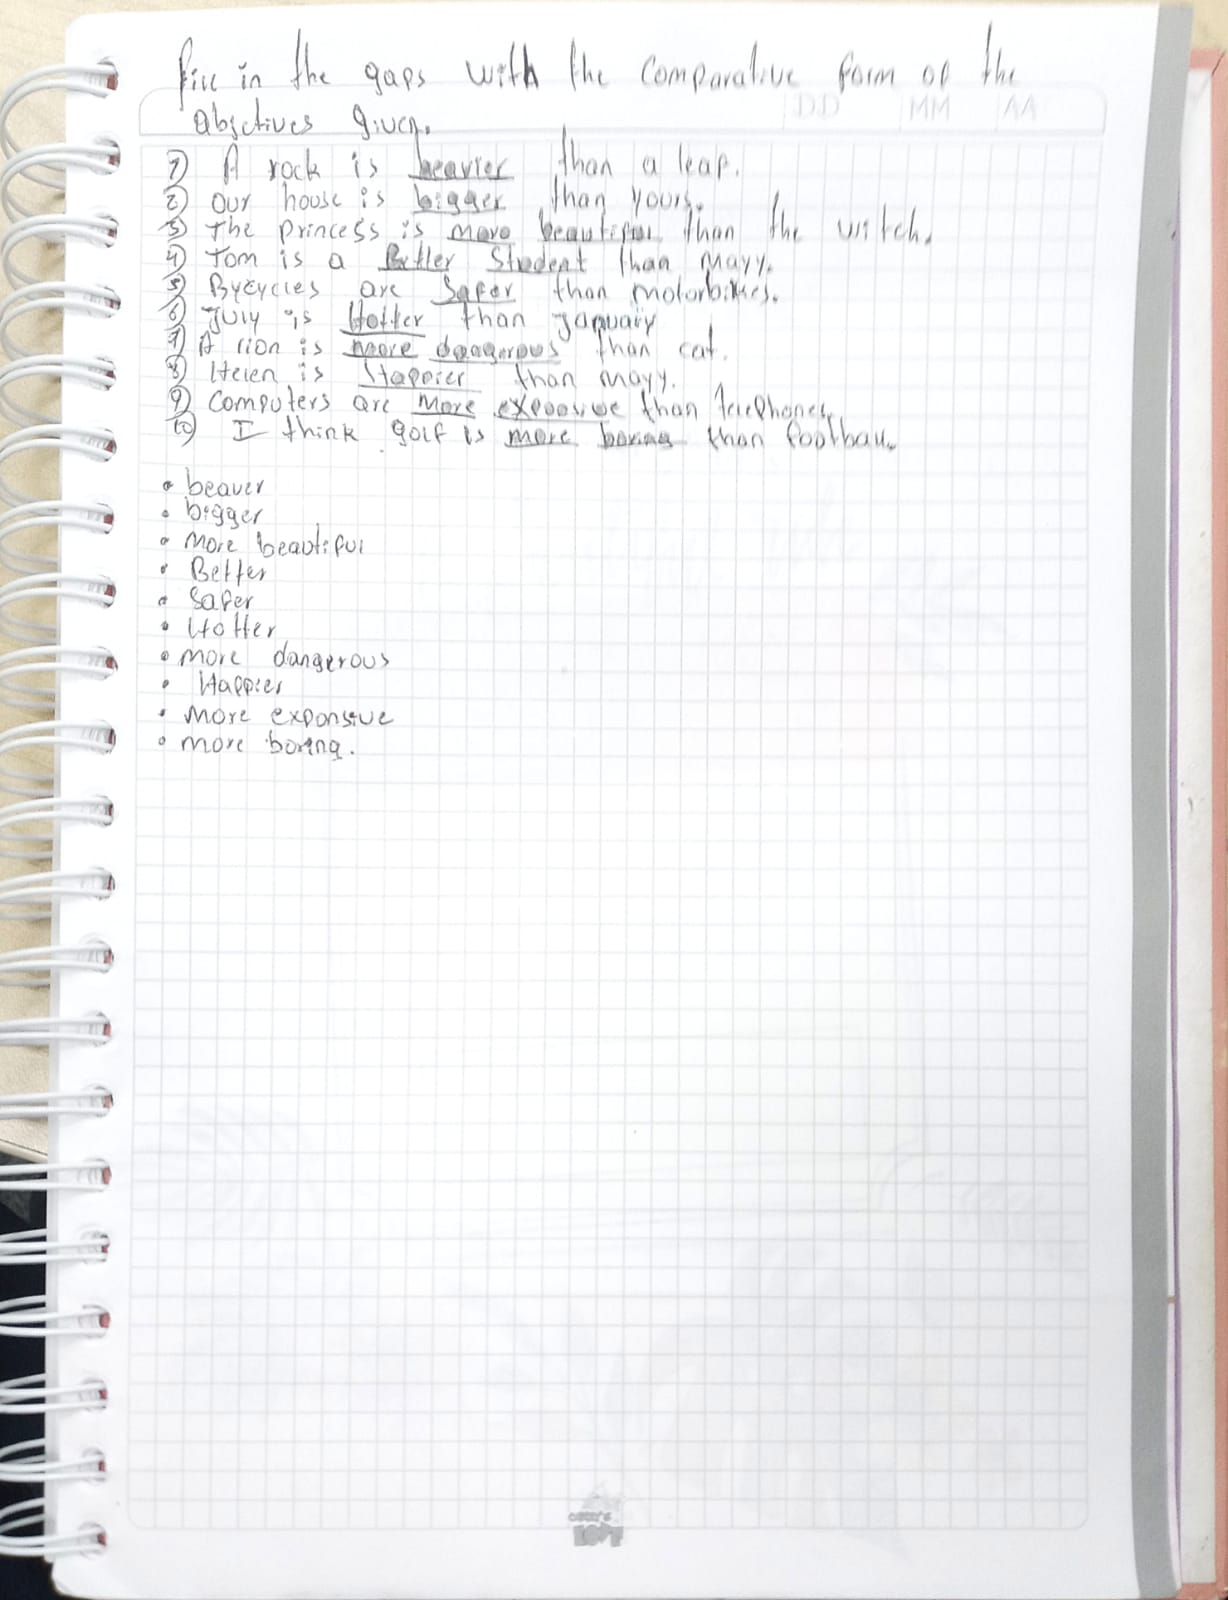 Fill in the gaps with the comparative form of the
abjetives given.
DD MM AA
1) A rock is heavier than a leaf.
2) Our house is bigger than yours.
3) The princess is more beautiful than the witch.
4) Tom is a Better Student than mayy.
5) Bycycles are Safer than motorbikes.
6) July is Hotter than january
7) A lion is more dangerous than cat.
8) Helen is Happier than mayy.
9) Computers are more expensive than telephones.
10) I think golf is more boring than football.
• beaver
• bigger
• more beautiful
• Better
• Safer
• Hotter
• more dangerous
• Happier
• more exponsive
• more boring.